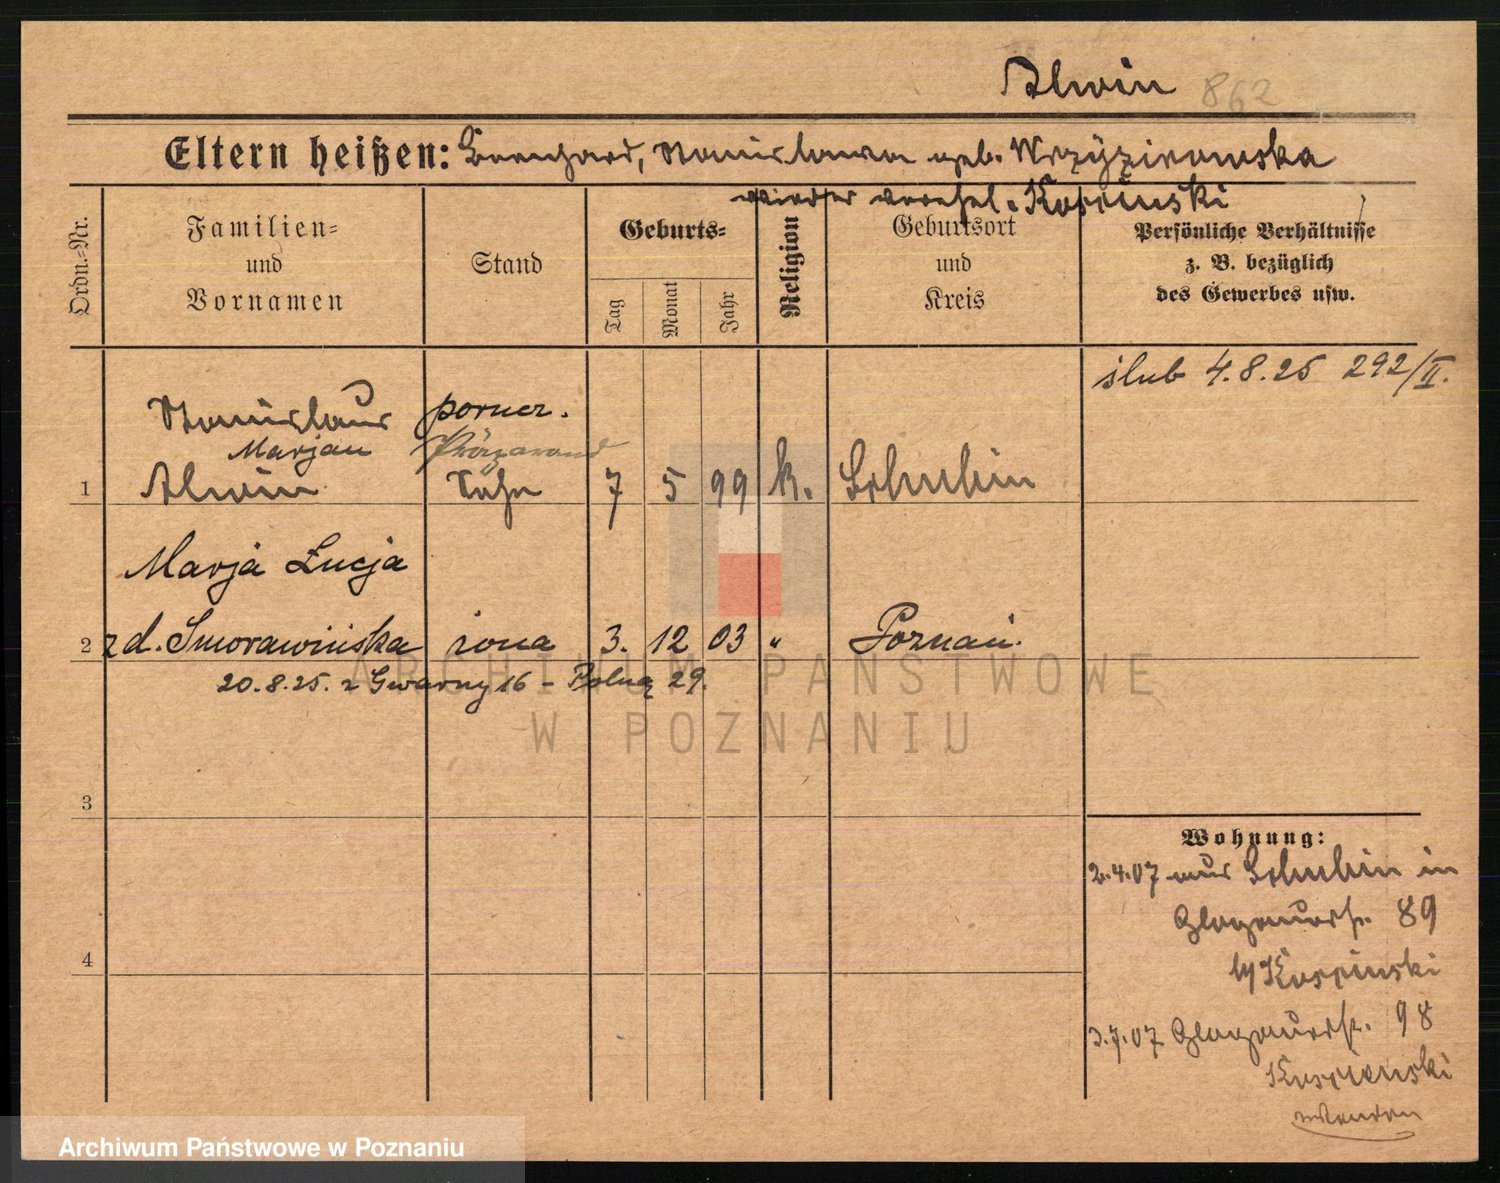 Alwin 862
Eltern heißen: Bernhard, Stanislawa geb.
wieder verehel. Kosinski
Ordn.-Nr.
Familien-
und
Vornamen
Stand
Geburts-
Tag
Monat
Jahr
Religion
Geburtsort
und
Kreis
Persönliche Verhältnisse
z. B. bezüglich
des Gewerbes usw.
ślub 4.8.25 292/II.
Stanislaus porucz.
Marjan
1 Alwin Sohn 7 5 99 k. Schubin
Marja Łucja
2 zd. Smorawińska żona 3. 12 03 " Poznań.
20.8.25. z Gwarny 16 - Polną 29.
ARCHIWUM PAŃSTWOWE
W POZNANIU
3
4
Wohnung:
2.4.07 aus Schubin in
Glogauerstr. 89
b/ Kosinski
3.7.07 Glogauerstr. 98
Kosinski
Archiwum Państwowe w Poznaniu